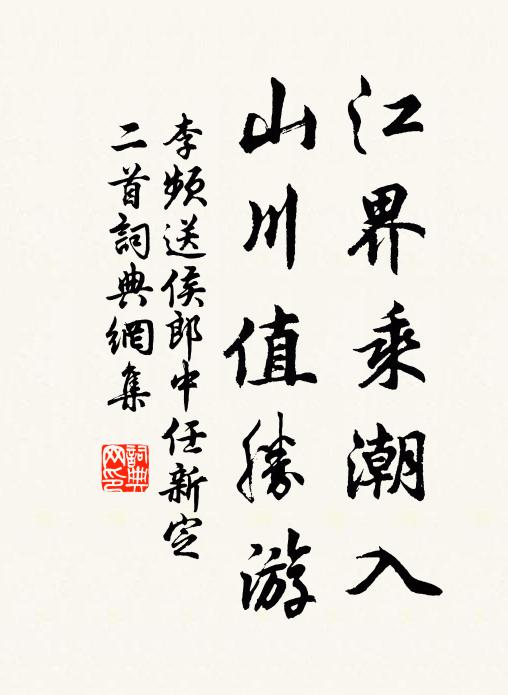 江界乘潮入
山川值勝游
李頻送侯郎中任新定
二首詞典網集
詞典
网印